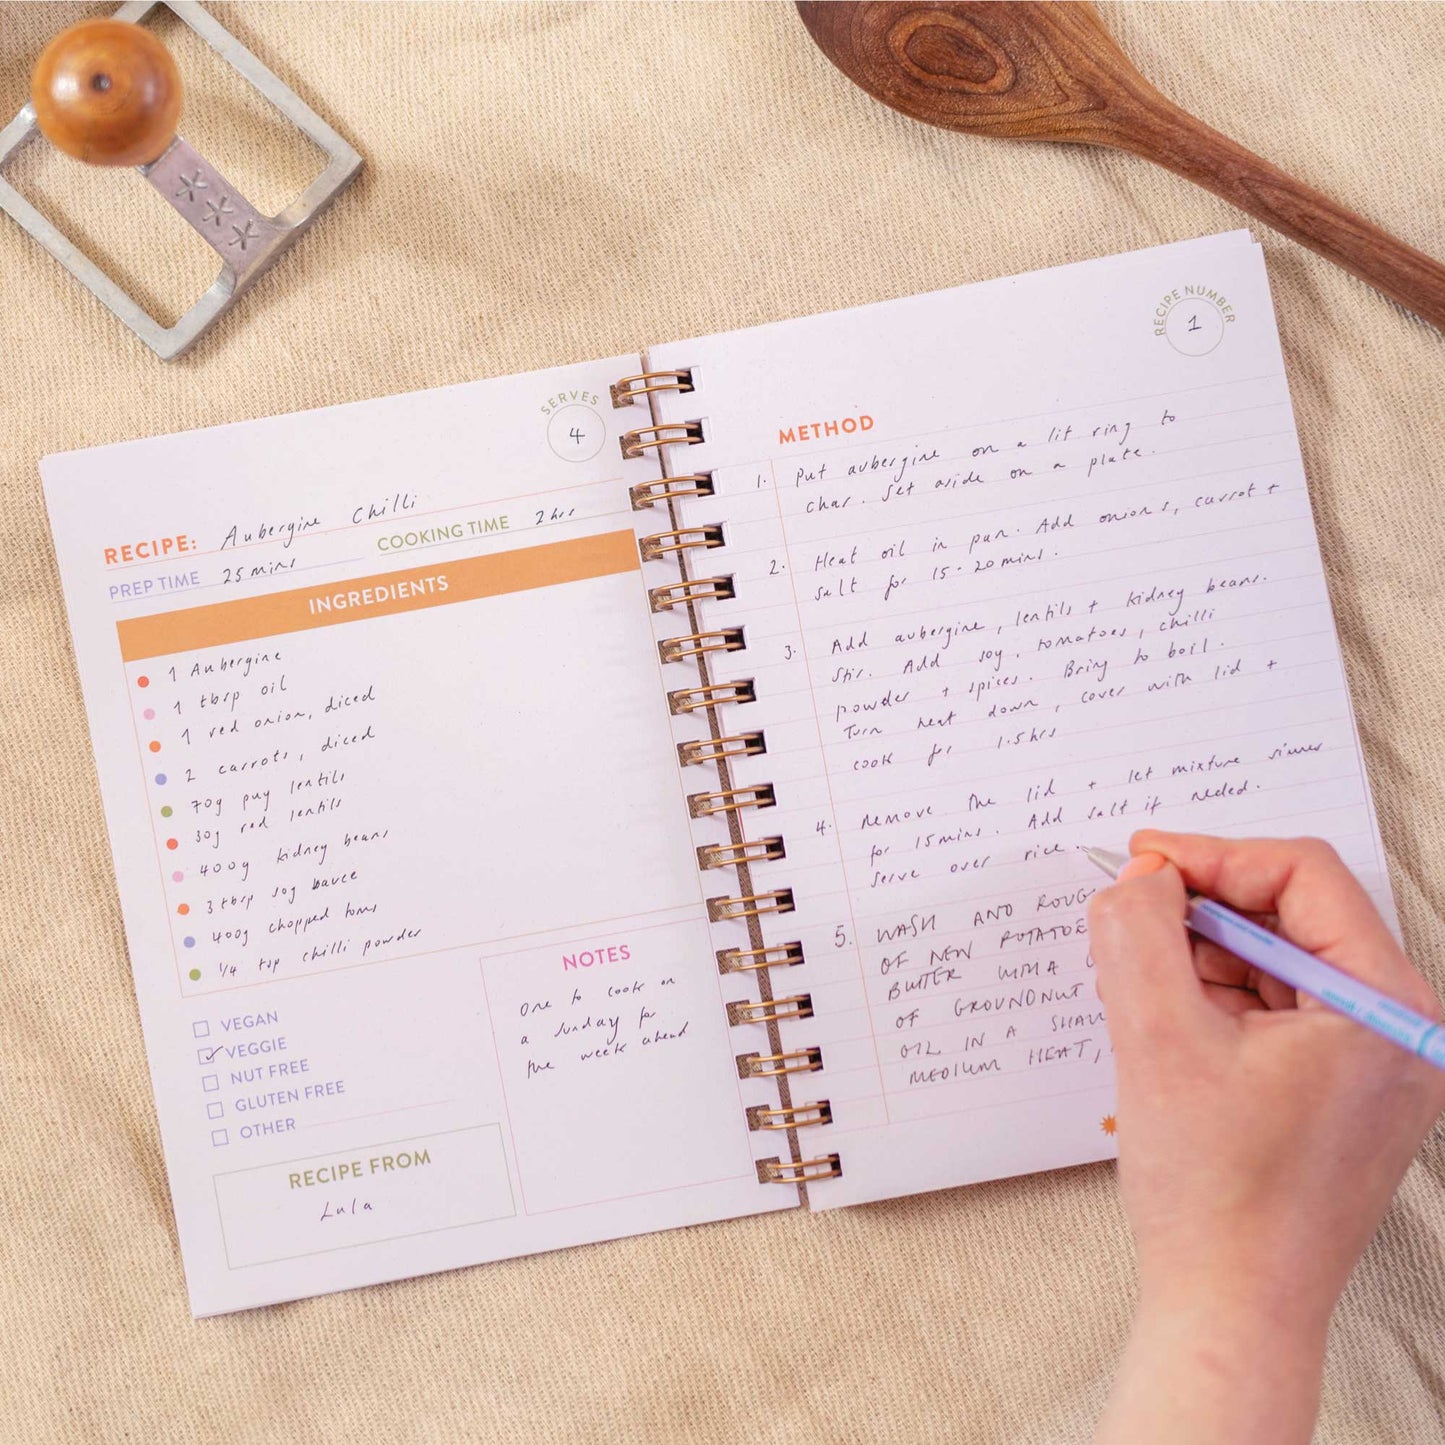 SERVES
4
RECIPE: Aubergine Chilli
PREP TIME 25 mins COOKING TIME 2 hrs
INGREDIENTS
1 Aubergine
1 tbsp oil
1 red onion, diced
2 carrots, diced
70g puy lentils
30g red lentils
400g kidney beans
3 tbsp soy sauce
400g chopped toms
1/4 tsp chilli powder
VEGAN
VEGGIE
NUT FREE
GLUTEN FREE
OTHER
NOTES
One to cook on
a Sunday for
the week ahead
RECIPE FROM
Lula
RECIPE NUMBER
1
METHOD
1. Put aubergine on a lit ring to
char. Set aside on a plate.
2. Heat oil in pan. Add onions, carrot +
salt for 15-20 mins.
3. Add aubergine, lentils + kidney beans.
Stir. Add soy, tomatoes, chilli
powder + spices. Bring to boil.
Turn heat down, cover with lid +
cook for 1.5 hrs
4. Remove the lid + let mixture simmer
for 15 mins. Add salt if needed.
Serve over rice.
5. WASH AND ROUG
OF NEW POTATOE
BUTTER WITH A
OF GROUNDNUT
OIL IN A SHAL
MEDIUM HEAT,